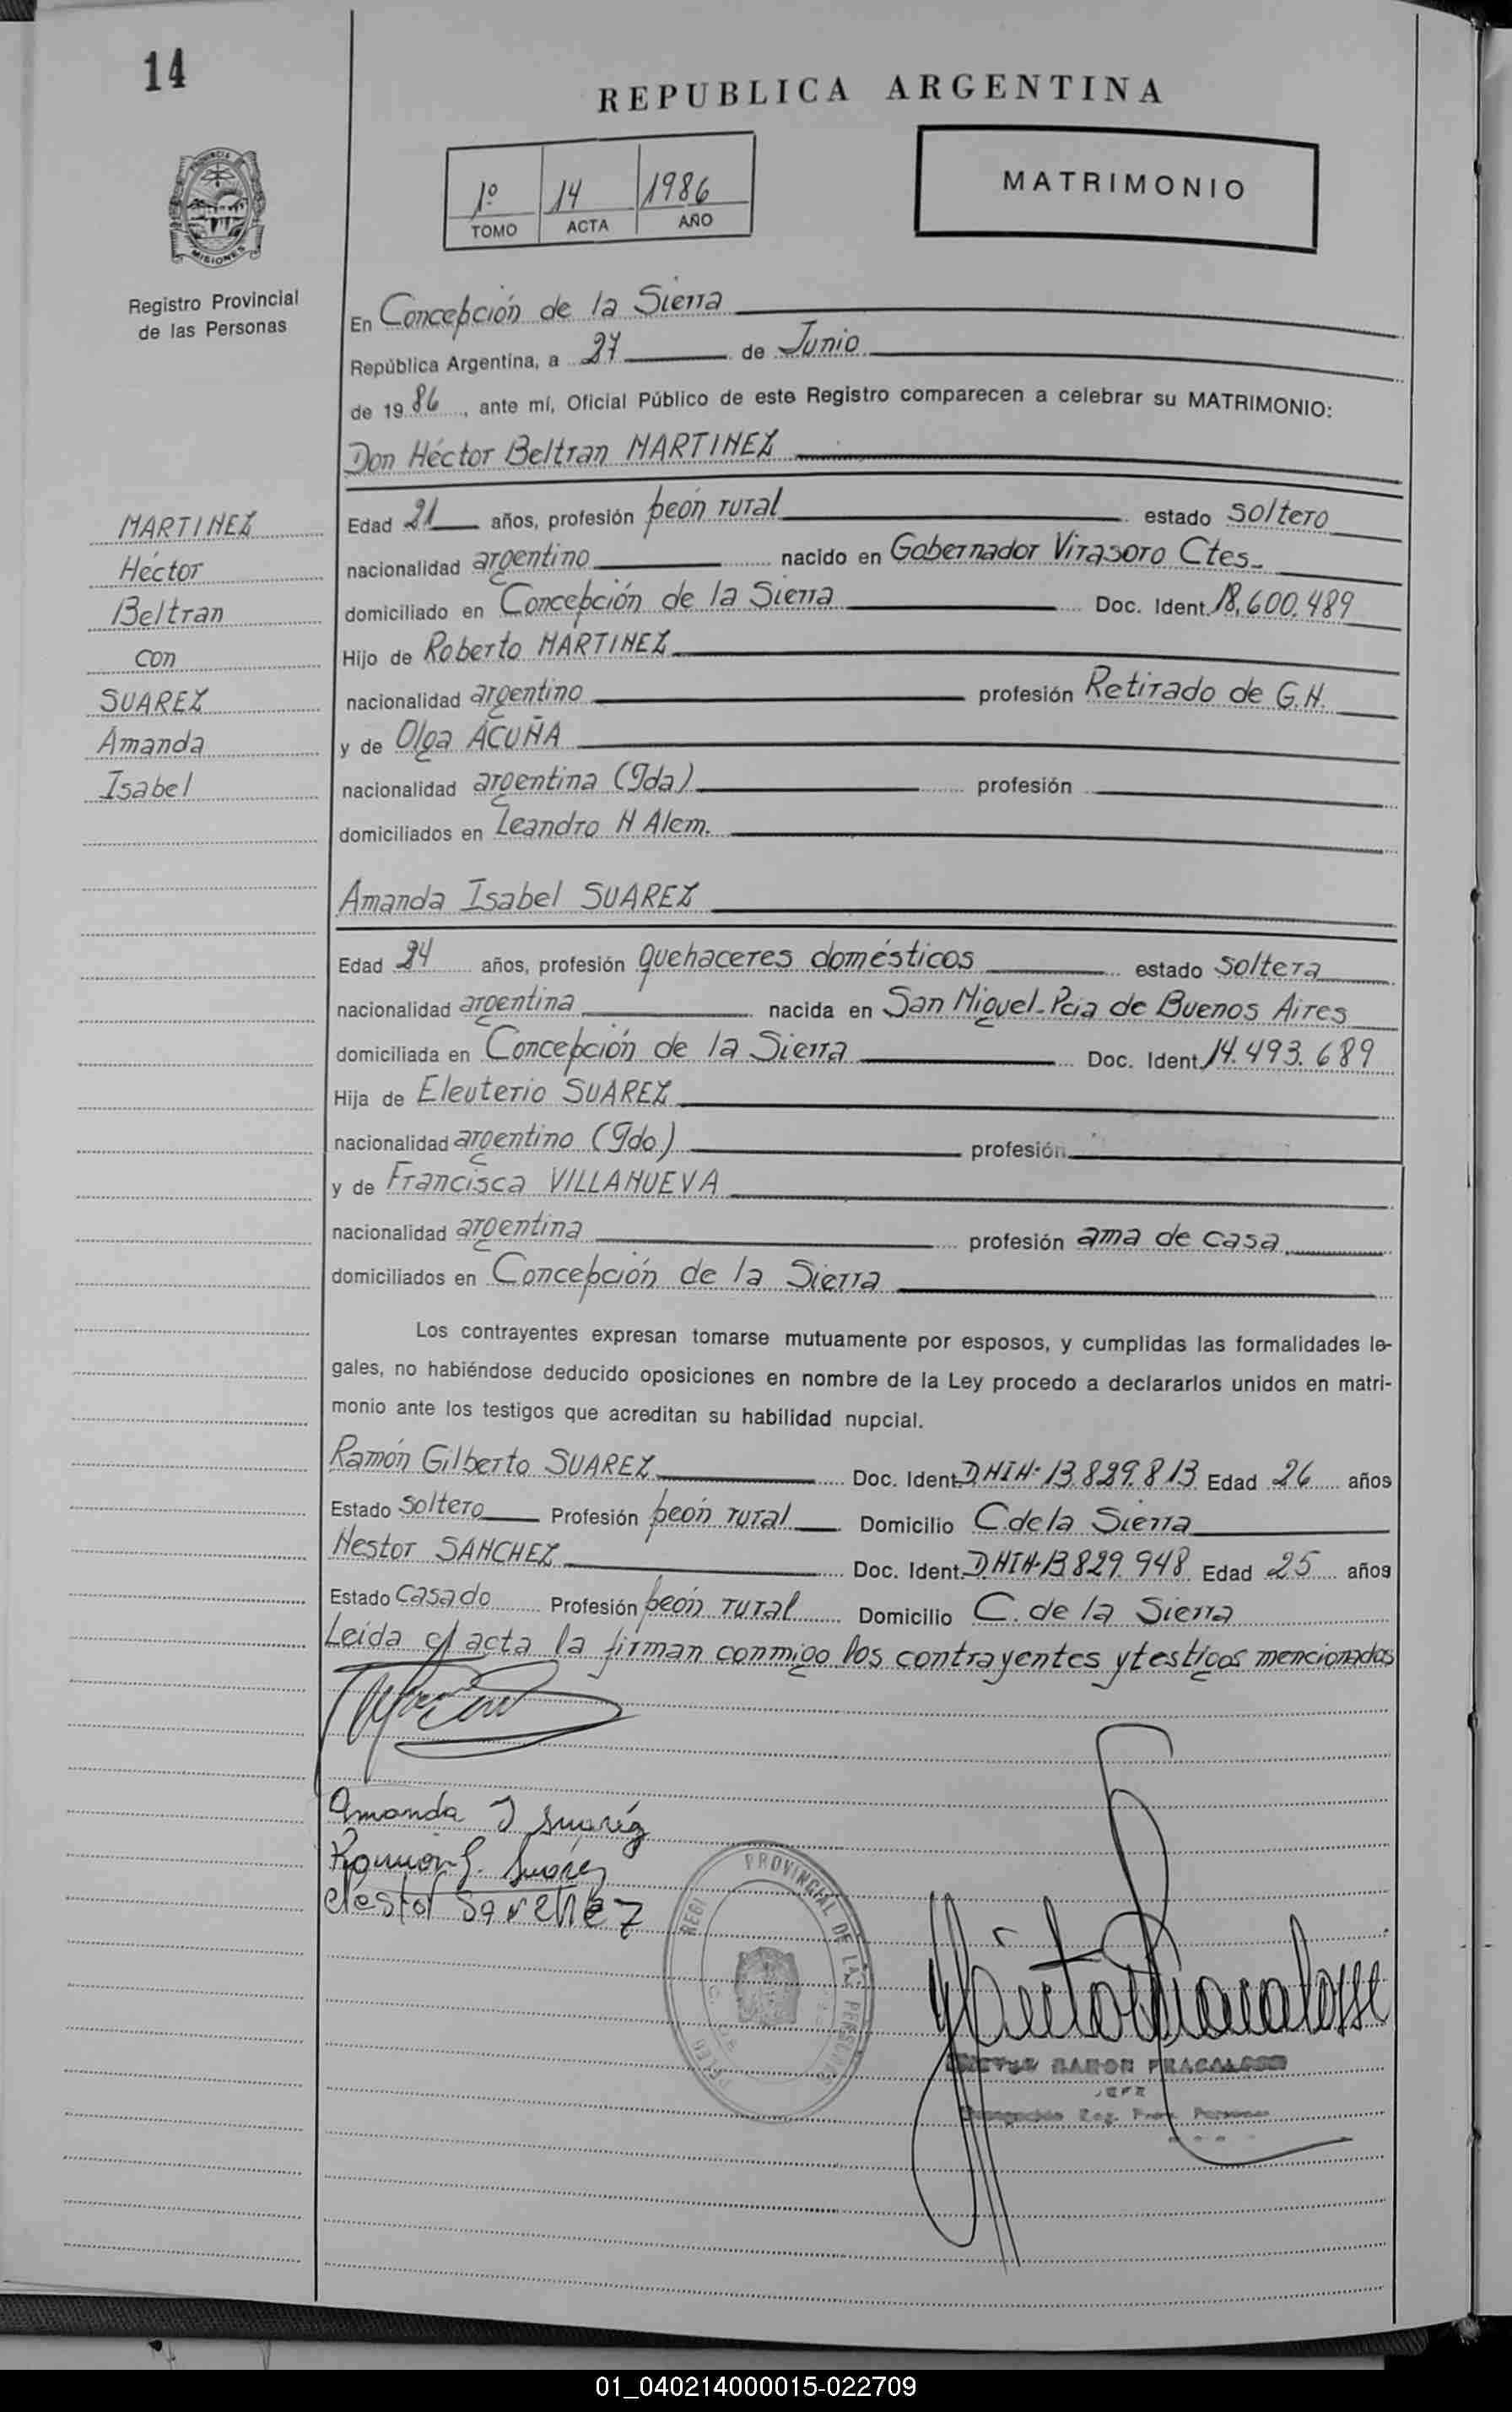 14
REPUBLICA ARGENTINA
1º 14 1986
TOMO ACTA AÑO
MATRIMONIO
PROVINCIA DE
MISIONES
Registro Provincial
de las Personas
En Concepción de la Sierra
República Argentina, a 27 de Junio
de 1986, ante mí, Oficial Público de este Registro comparecen a celebrar su MATRIMONIO:
Don Héctor Beltran MARTINEZ
MARTINEZ
Héctor
Beltran
con
SUAREZ
Amanda
Isabel
Edad 21 años, profesión peón rural estado soltero
nacionalidad argentino nacido en Gobernador Virasoro Ctes.
domiciliado en Concepción de la Sierra Doc. Ident. 18.600.489
Hijo de Roberto MARTINEZ
nacionalidad argentino profesión Retirado de G.N.
y de Olga ACUÑA
nacionalidad argentina (fda) profesión
domiciliados en Leandro N Alem.
Amanda Isabel SUAREZ
Edad 24 años, profesión quehaceres domésticos estado soltera
nacionalidad argentina nacida en San Miguel-Pcia de Buenos Aires
domiciliada en Concepción de la Sierra Doc. Ident. 14.493.689
Hija de Eleuterio SUAREZ
nacionalidad argentino (fdo) profesión
y de Francisca VILLANUEVA
nacionalidad argentina profesión ama de casa
domiciliados en Concepción de la Sierra
Los contrayentes expresan tomarse mutuamente por esposos, y cumplidas las formalidades le-
gales, no habiéndose deducido oposiciones en nombre de la Ley procedo a declararlos unidos en matri-
monio ante los testigos que acreditan su habilidad nupcial.
Ramón Gilberto SUAREZ Doc. Ident. DNIN· 13.829.813 Edad 26 años
Estado soltero Profesión peón rural Domicilio C. de la Sierra
Nestor SANCHEZ Doc. Ident. DNIN·13829.948 Edad 25 años
Estado casado Profesión peón rural Domicilio C. de la Sierra
Leída el acta la firman conmigo los contrayentes y testigos mencionados
Amanda I Suaréz
Ramón G. Suárez
Nestor Sanchez
REGI PROVINCIAL DE LAS PERSONAS
RAMON FRACALOSSI
JEFE
Reg. Prov. Personas
01_040214000015-022709